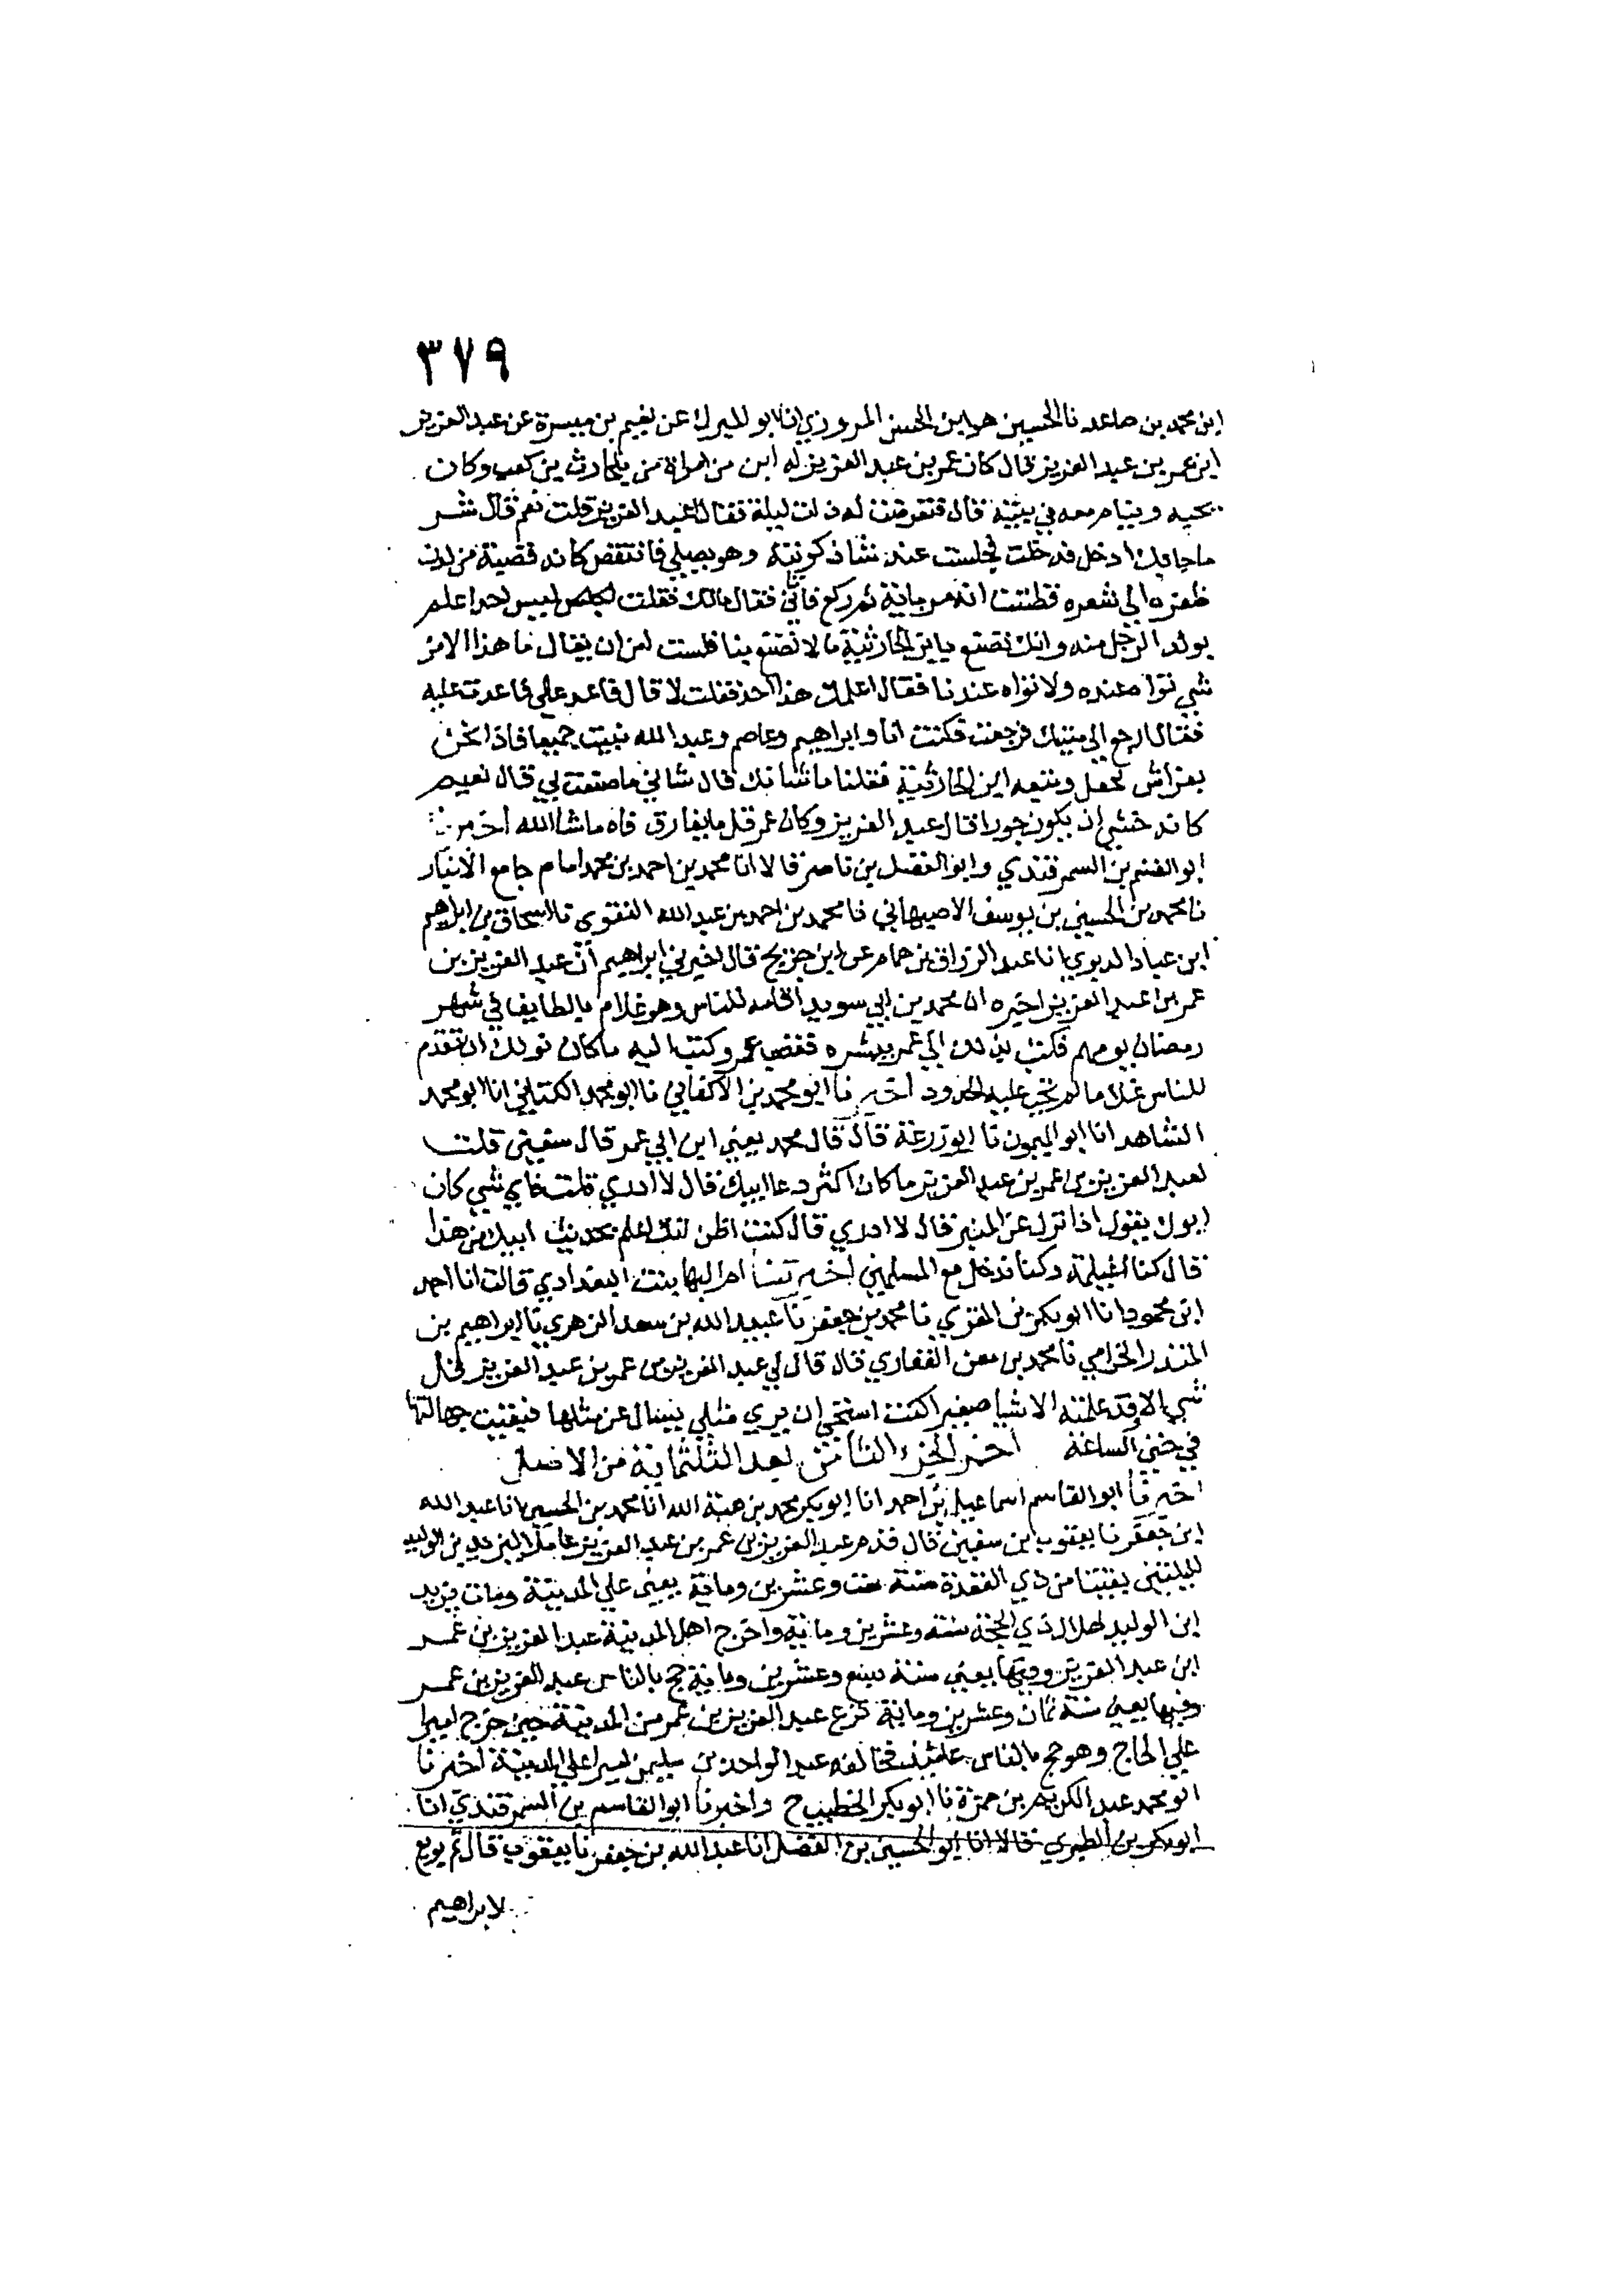 ٣٧٩
ابن محمد بن صاعد نا الحسين هو ابن الحسن المروزي انا ابو المبرك عن نعيم بن ميسرة عن عبد العزيز
ابن عمر بن عبد العزيز قال كان عمر بن عبد العزيز له ابن من امراة من بلحارث بن كعب وكان
يحبه وينام معه في بيته قال فتعرضت له ذات ليلة فقال اعبد العزيز قلت نعم قال شر
ما جا بك ادخل فدخلت فجلست عند شاذكونته وهو يصلي
ظفره الى شعره فظننت انه ثم ركع فاتاني فقال مالك فقلت ليس احدا علم
بولد الرجل منه وانك تصنع بابن الحارثية ما لا تصنع بنا فلست امن ان يقال ما هذا الامن
شي تراه عنده ولا تراه عندنا فقال اعلمك هذا احد فقلت لا قال فاعد علي فاعدت عليه
فقال ارجع الى بيتك فرجعت فكنت انا وابراهيم وعاصم وعبد الله نبيت جميعا فاذا نحن
بفراش يحمل وتبعه ابن الحارثية فقلنا ما شانك قال شاني ما صنعت بي قال نعيم
كانه خشي ان يكون جورا قال عبد العزيز وكان عمر قل ما يفارق فاه ماشا الله اخبرنا
ابو القسم بن السمرقندي وابو الفضل بن ناصر قالا انا محمد بن احمد بن محمد امام جامع الانبار
نا محمد بن الحسين بن يوسف الاصبهاني نا محمد بن احمد بن عبد الله النقوى نا اسحاق بن ابراهيم
ابن عباد الدبري انا عبد الرزاق بن همام عن ابن جريج قال اخبرني ابراهيم ان عبد العزيز بن
عمر بن عبد العزيز اخبره ان محمد بن ابي سويد اقامه للناس وهو غلام بالطايف في شهر
رمضان يومهم فكتب بذلك الي عمر يبشره فغضب عمر وكتب اليه ما كان نولك ان تقدم
للناس غلاما لم تجب عليه الحدود اخبرنا ابو محمد بن الاكفاني نا ابو محمد الكتاني انا ابو محمد
الشاهد انا ابو الميمون نا ابو زرعة قال قال محمد يعني ابن ابي عمر قال سفين قلت
لعبد العزيز بن عمر بن عبد العزيز ما كان اكثر دعا ابيك قال لا ادري قلت فاي شي كان
ابوك يقول اذا نزل عن المنبر قال لا ادري قال كنت اظن انك اعلم بحديث ابيك من هذا
قال كنا اغيلمة وكنا ندخل مع المسلمين اخبرتنا ام البها بنت البغدادي قالت انا احمد
ابن محمود انا ابو بكر بن المقري نا محمد بن جعفر نا عبيد الله بن سعد الزهري نا ابراهيم بن
المنذر الحزامي نا محمد بن معن الغفاري قال قال لي عبد العزيز بن عمر بن عبد العزيز
شي الا وقد علمته الا اشيا صغيرا كنت استحي ان يري مثلي يسال عن مثلها فبقيت جهالتها
في حتى الساعة اخر الجزء الثامن بعد الثلثماية من الاصل
اخبرنا ابو القاسم اسماعيل بن احمد انا ابو بكر محمد بن هبة الله انا محمد بن الحسين انا عبد الله
ابن جعفر نا يعقوب بن سفين قال قدم عبد العزيز بن عمر بن عبد العزيز عاملا ليزيد بن الوليد
لليلتين بقيتا من ذي القعدة سنة ست وعشرين وماية يعني علي المدينة ومات يزيد
ابن الوليد لهلال ذي الحجة سنة وعشرين وماية واخرج اهل المدينة عبد العزيز بن عمر
ابن عبد العزيز وفيها يعني سنة سبع وعشرين وماية حج بالناس عبد العزيز بن عمر
وفيها يعني سنة ثمان وعشرين وماية نزع عبد العزيز بن عمر من المدينة حين خرج اميرا
علي الحاج وهو حج بالناس عامئذ عبد الواحد بن سليمن اميرا علي المدينة اخبرنا
ابو محمد عبد الكريم بن حمزة نا ابو بكر الخطيب ح واخبرنا ابو القاسم بن السمرقندي انا
ابو بكر بن الطبري قالا انا ابو الحسين بن الفضل انا عبد الله بن جعفر نا يعقوب قال ثم بويع
لابراهيم